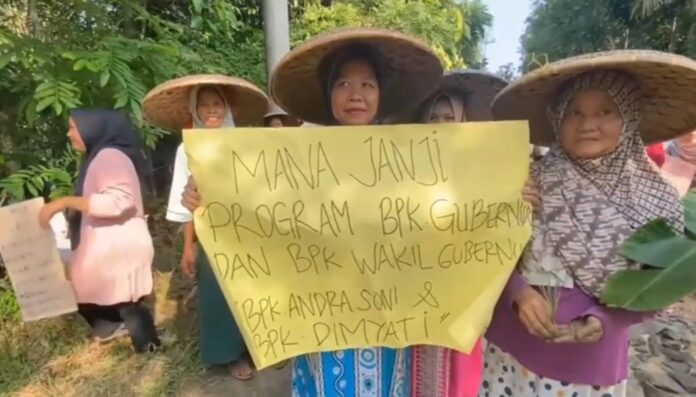 MANA JANJI
PROGRAM BPK GUBERNU
DAN BPK WAKIL GUBERNU
"BPK. ANDRA SONI &
BPK. DIMYATI"